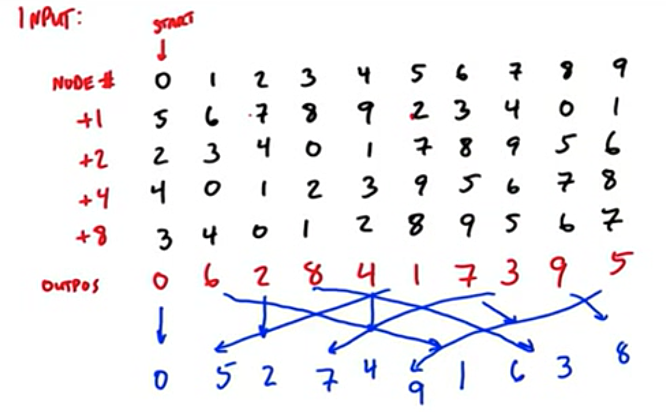 INPUT:
START
NODE # 0 1 2 3 4 5 6 7 8 9
+1 5 6 7 8 9 2 3 4 0 1
+2 2 3 4 0 1 7 8 9 5 6
+4 4 0 1 2 3 9 5 6 7 8
+8 3 4 0 1 2 8 9 5 6 7
OUTPOS 0 6 2 8 4 1 7 3 9 5
0 5 2 7 4 9 1 6 3 8